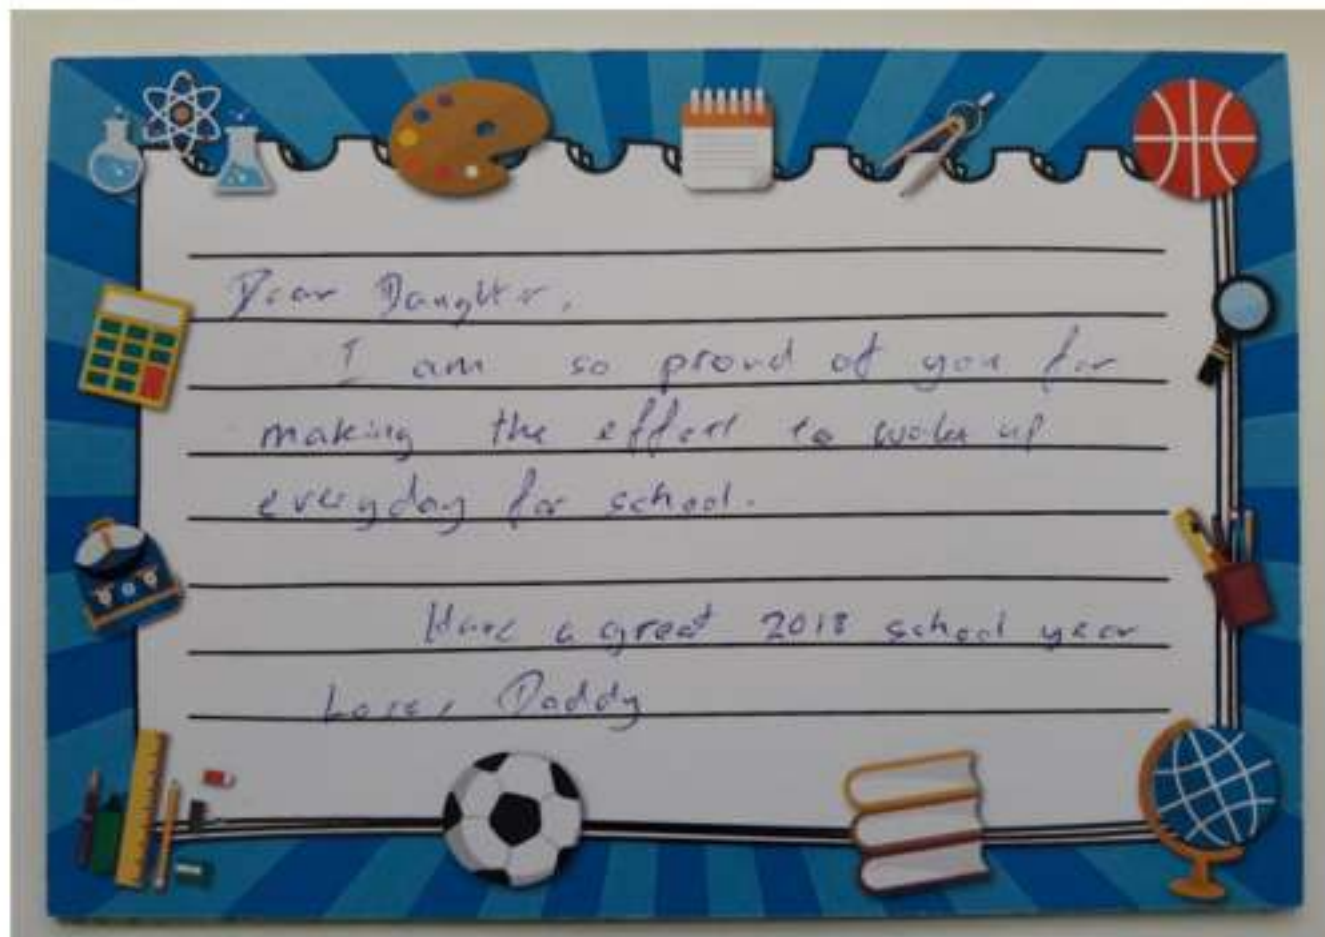 Dear Daughter,
I am so proud of you for
making the effort to wake up
everyday for school.
Have a great 2018 school year
Love, Daddy